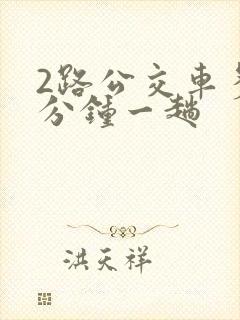 2路公交车
分钟一趟
洪天祥